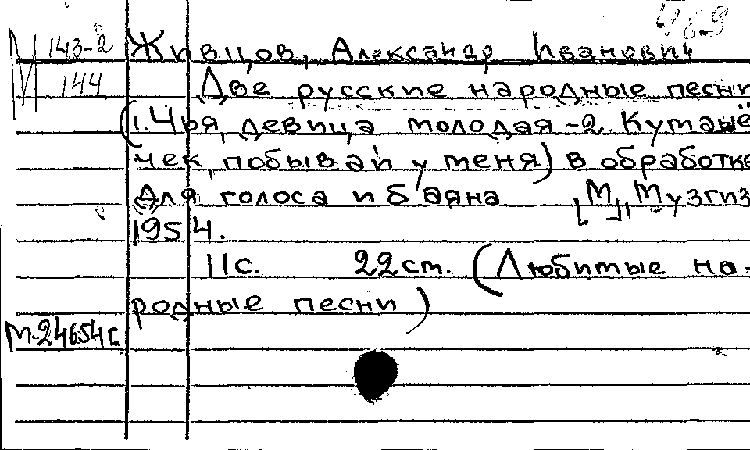 М 143-2 Живцов, Александр Иванович
144 Две русские народные песни
(1. Чья девица молодая -2. Кутанё
чек, побывай у меня) в обработке
для голоса и баяна [М], Музгиз
1954.
11с. 22 ст. (Любимые на-
родные песни)
М-24654с